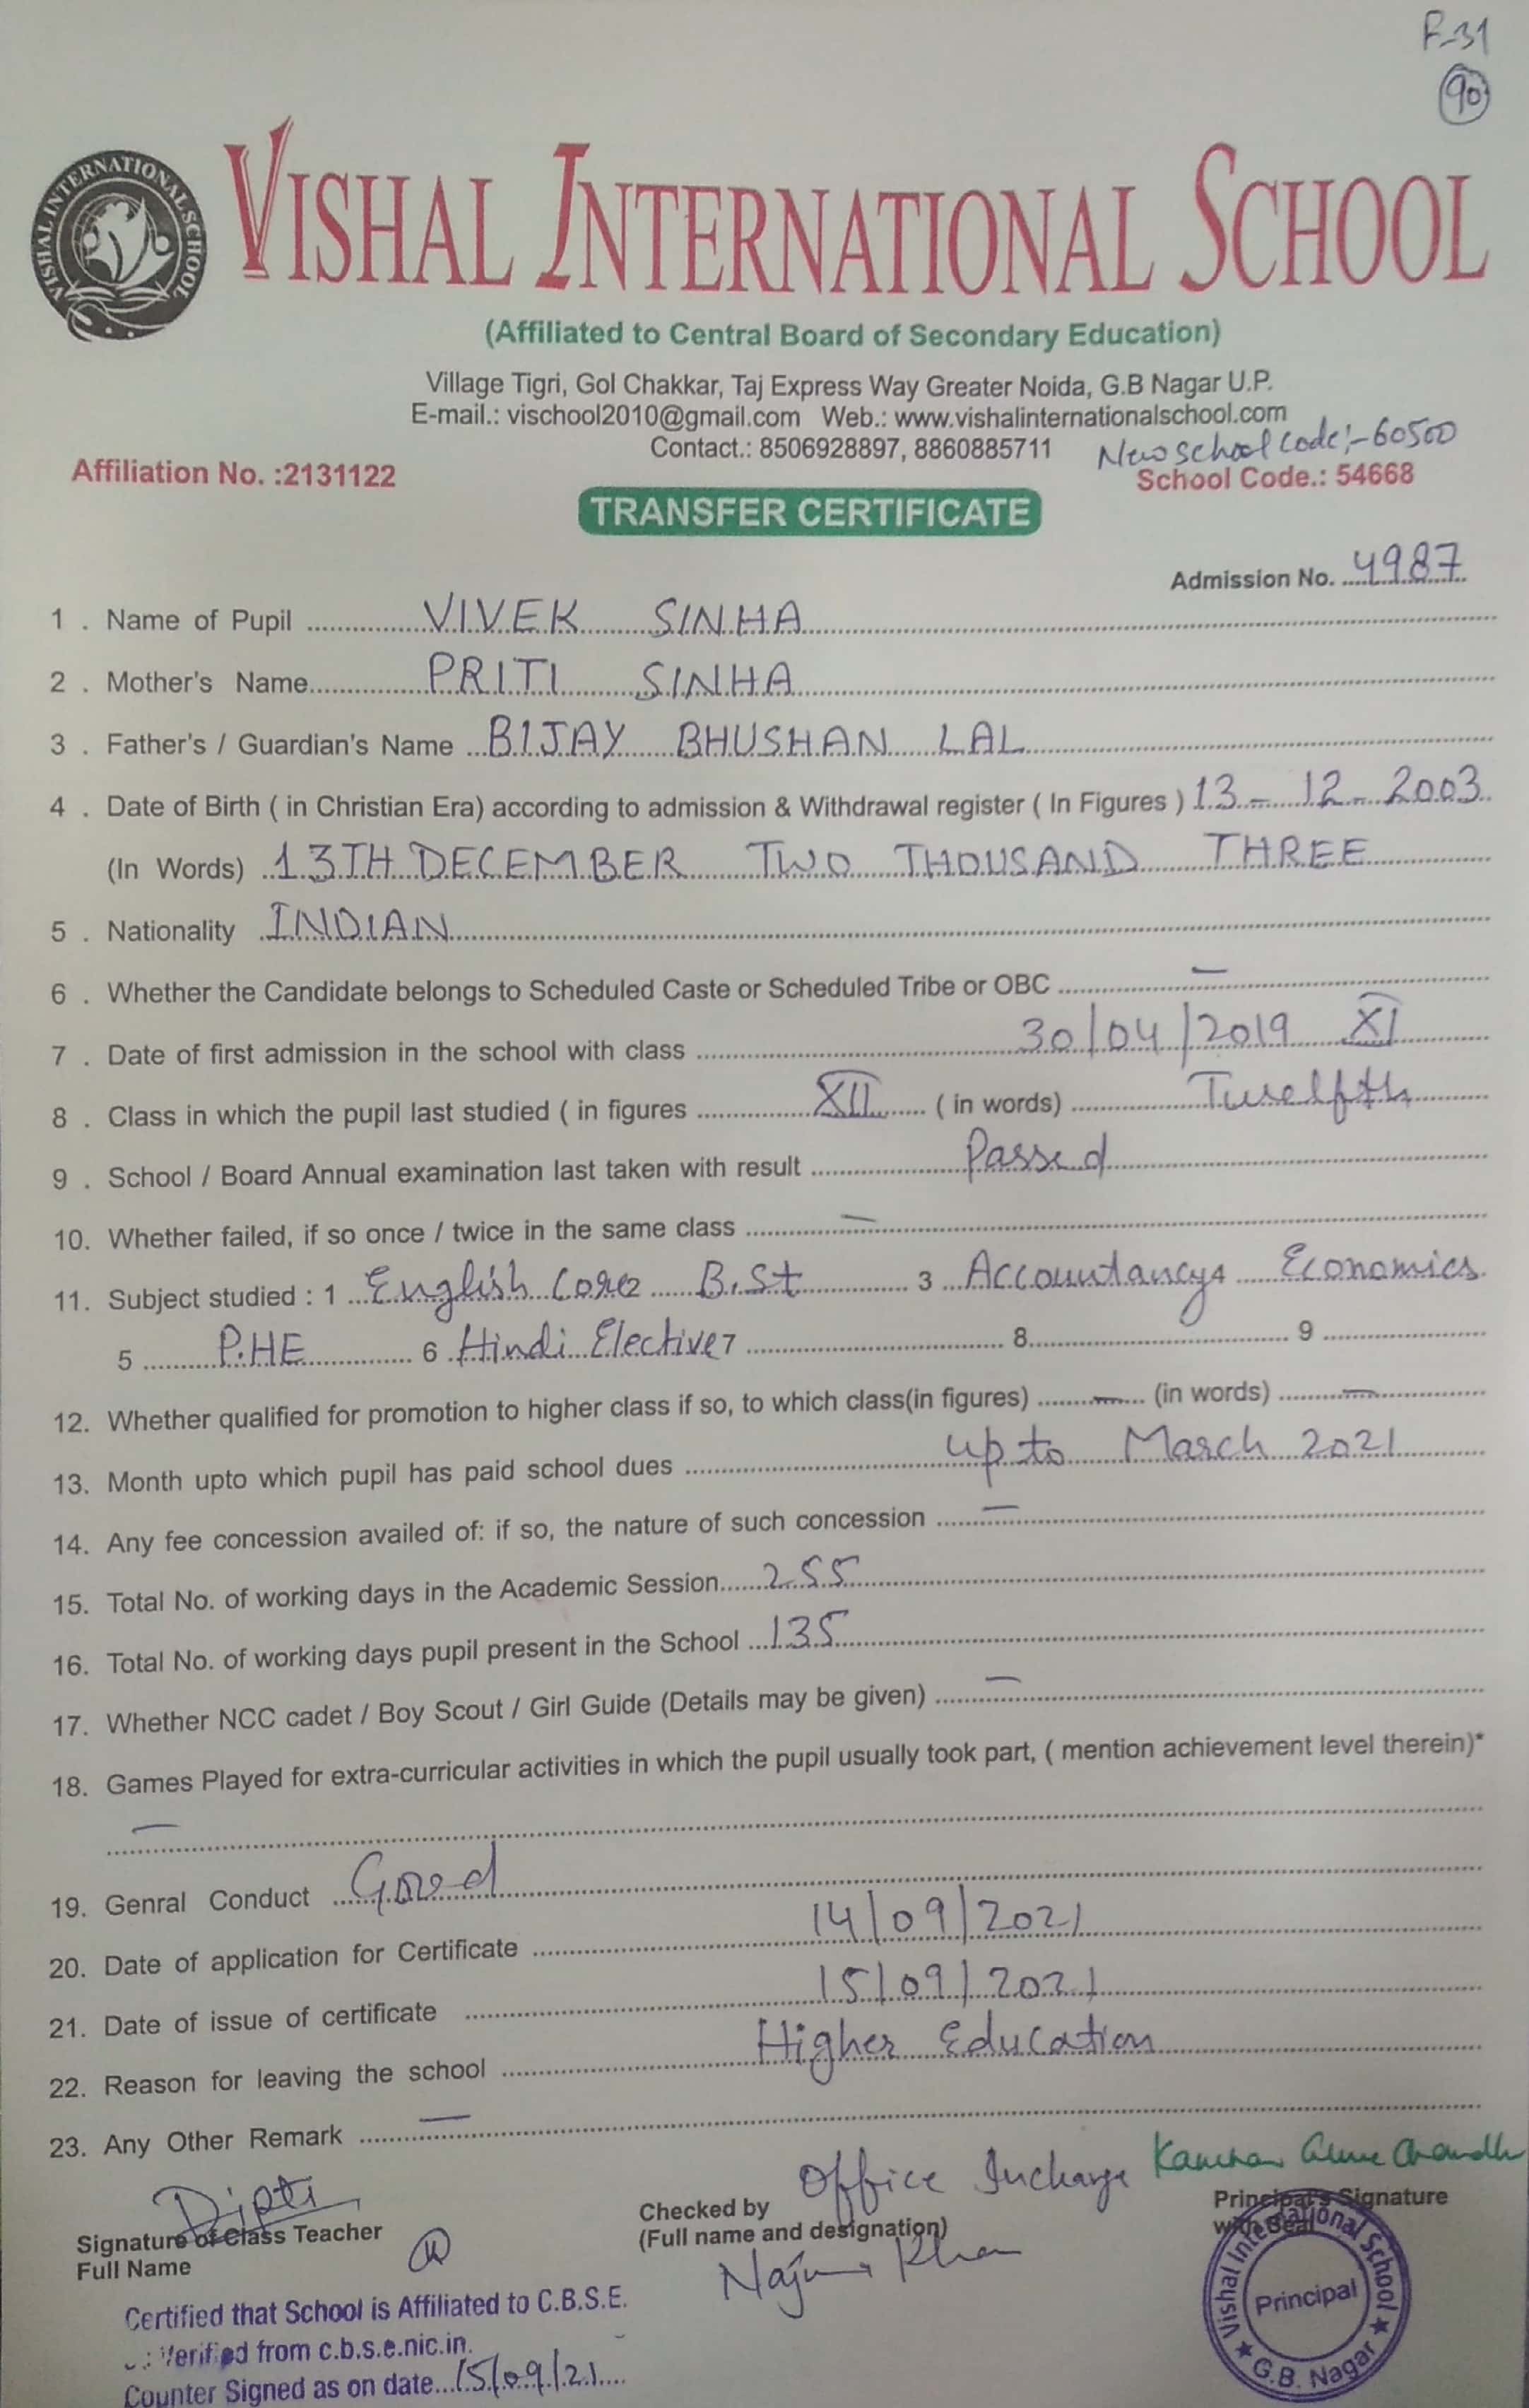 F-31
90
VISHAL INTERNATIONAL SCHOOL
VISHAL INTERNATIONAL SCHOOL
(Affiliated to Central Board of Secondary Education)
Village Tigri, Gol Chakkar, Taj Express Way Greater Noida, G.B Nagar U.P.
E-mail.: vischool2010@gmail.com Web.: www.vishalinternationalschool.com
Contact.: 8506928897, 8860885711 New school code:-60500
Affiliation No. :2131122 School Code.: 54668
TRANSFER CERTIFICATE
Admission No. 4987
1 . Name of Pupil VIVEK SINHA
2 . Mother's Name PRITI SINHA
3 . Father's / Guardian's Name BIJAY BHUSHAN LAL
4 . Date of Birth ( in Christian Era) according to admission & Withdrawal register ( In Figures ) 13 - 12 - 2003
(In Words) 13TH DECEMBER TWO THOUSAND THREE
5 . Nationality INDIAN
6 . Whether the Candidate belongs to Scheduled Caste or Scheduled Tribe or OBC —
7 . Date of first admission in the school with class 30/04/2019 XI
8 . Class in which the pupil last studied ( in figures XII ( in words) Twelfth
9 . School / Board Annual examination last taken with result Passed
10. Whether failed, if so once / twice in the same class —
11. Subject studied : 1 English Core 2 B.St 3 Accountancy 4 Economics
5 P.HE 6 Hindi Elective 7 8 9
12. Whether qualified for promotion to higher class if so, to which class(in figures) — (in words) —
13. Month upto which pupil has paid school dues up to March 2021
14. Any fee concession availed of: if so, the nature of such concession —
15. Total No. of working days in the Academic Session 255
16. Total No. of working days pupil present in the School 135
17. Whether NCC cadet / Boy Scout / Girl Guide (Details may be given) —
18. Games Played for extra-curricular activities in which the pupil usually took part, ( mention achievement level therein)*
—
19. Genral Conduct Good
20. Date of application for Certificate 14/09/2021
21. Date of issue of certificate 15/09/2021
22. Reason for leaving the school Higher Education
23. Any Other Remark —
Dipti Office Incharge
Signature of Class Teacher Checked by Principal's Signature
Full Name (Full name and designation) with Seal
Khan
Certified that School is Affiliated to C.B.S.E.
Verified from c.b.s.e.nic.in.
Counter Signed as on date...15/09/21....
Vishal International School
Principal
★ G.B. Nagar ★